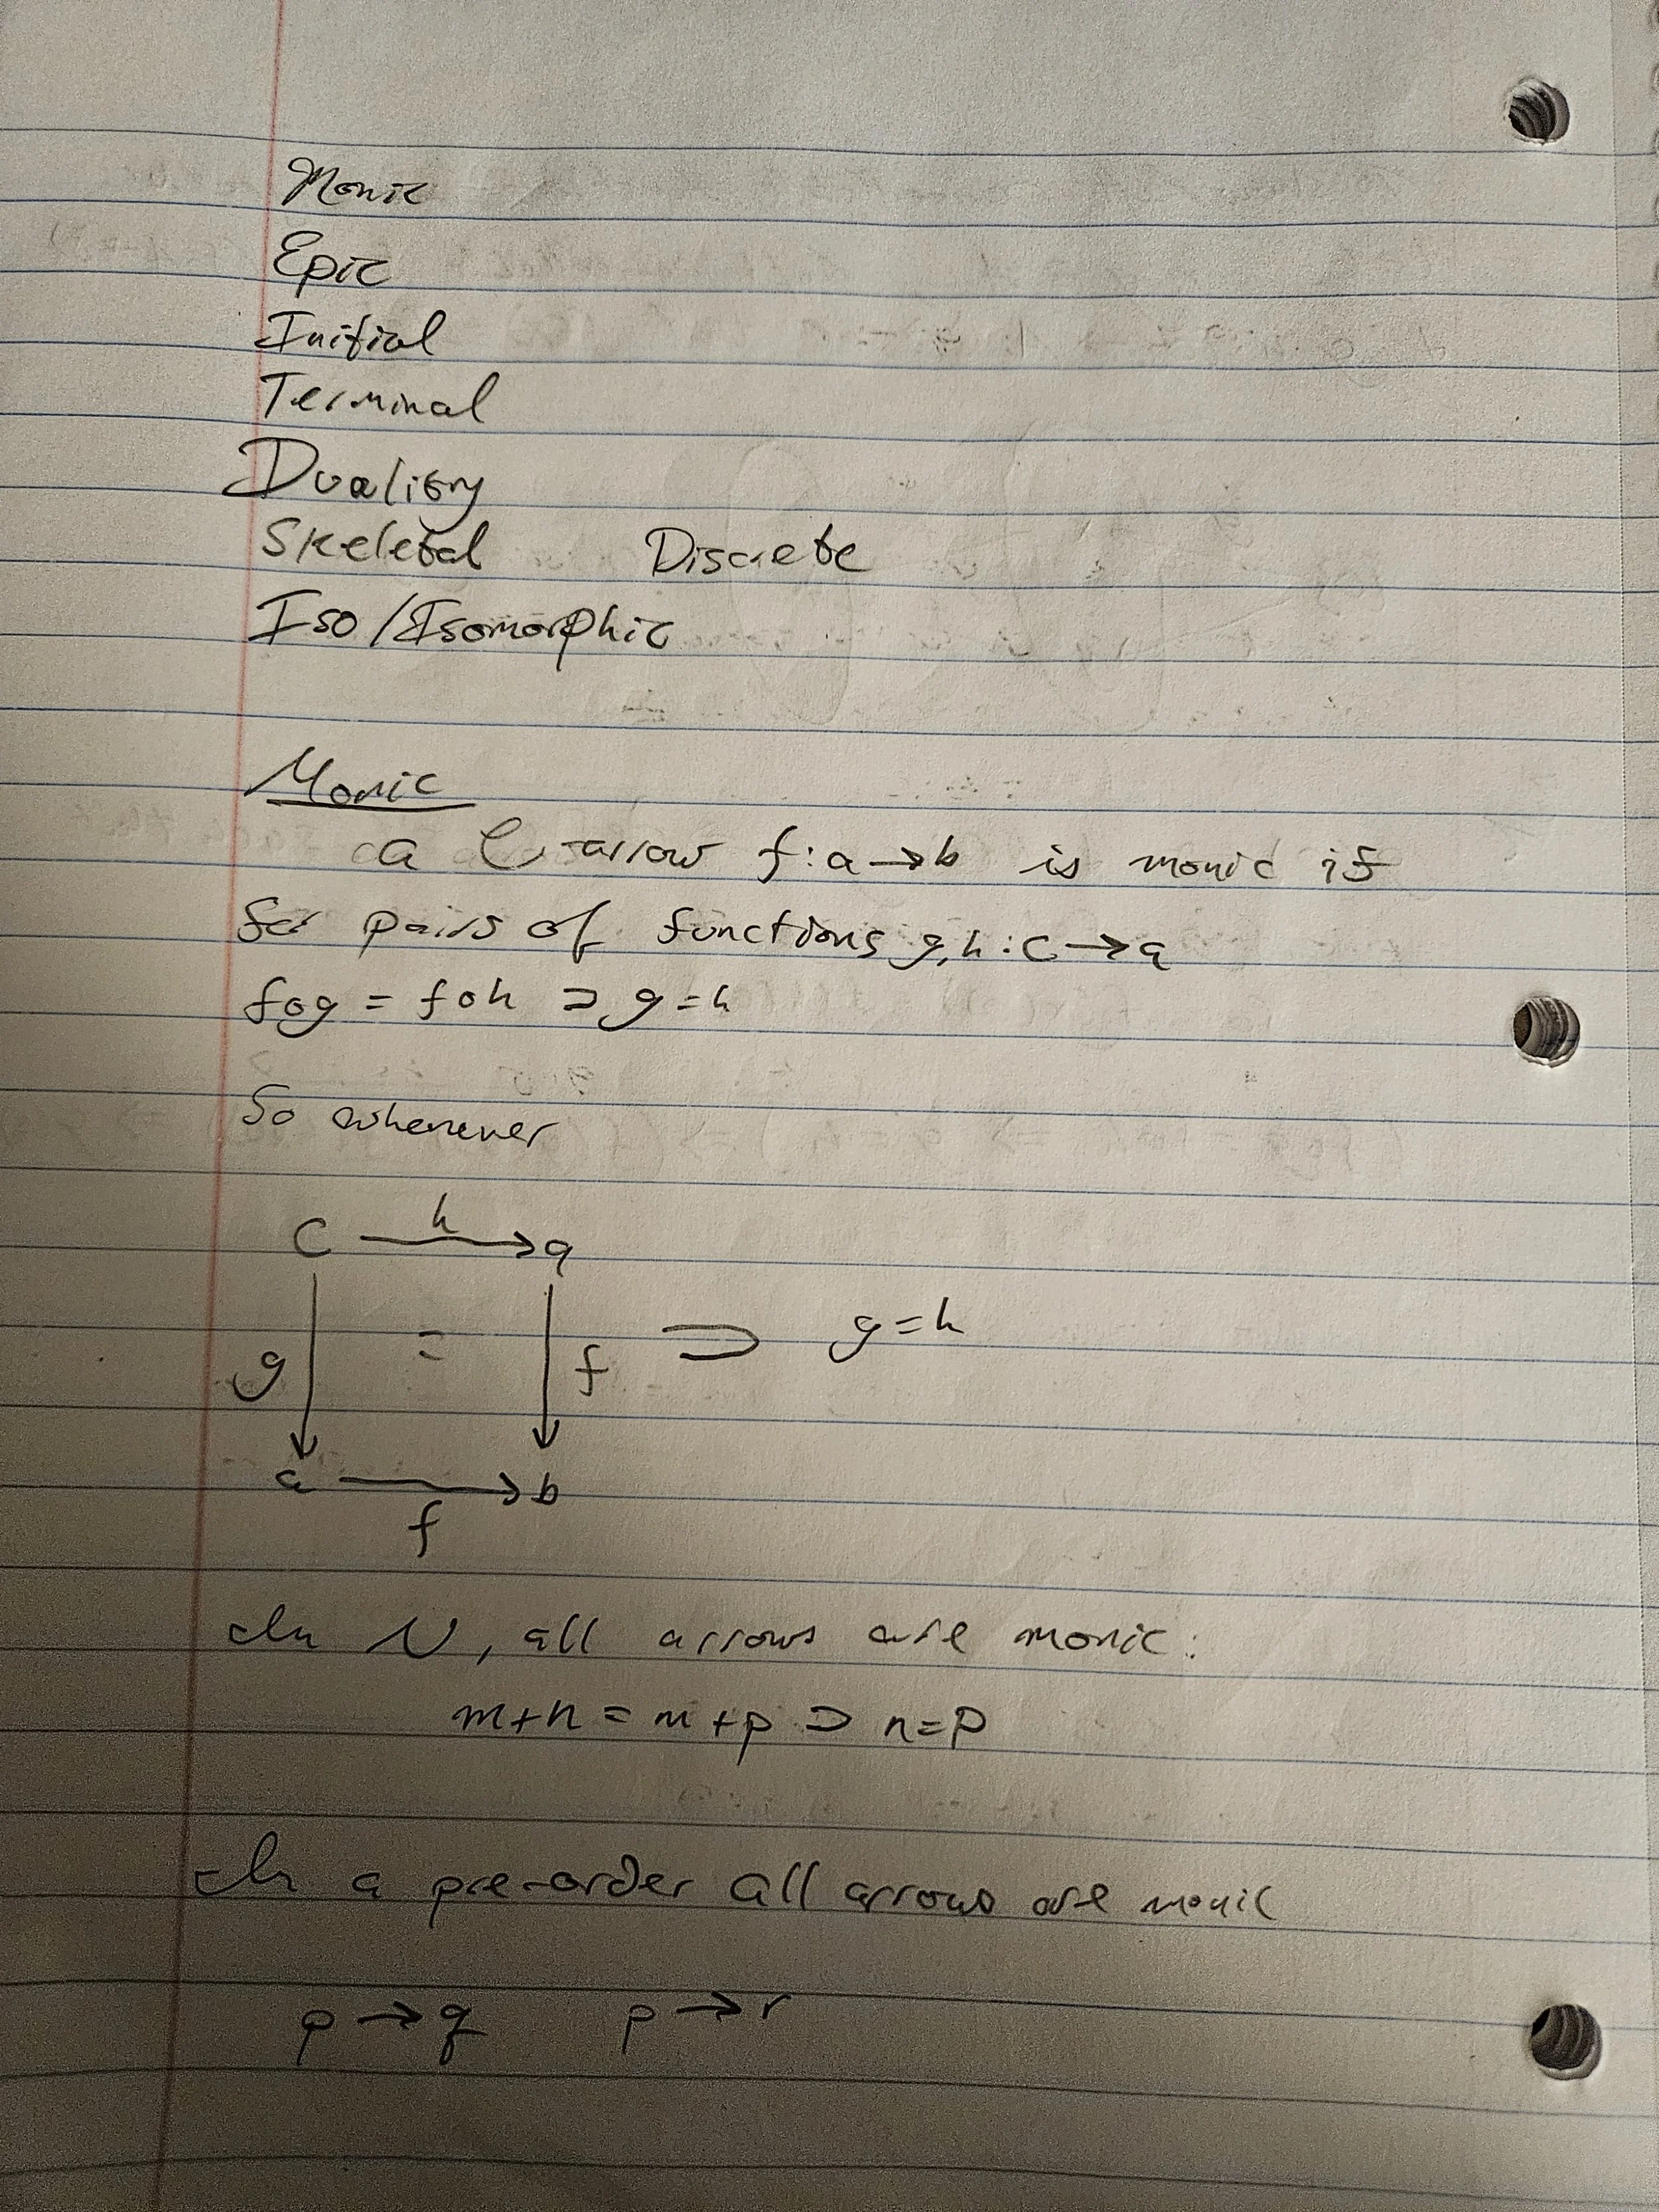 Monic
Epic
Initial
Terminal
Duality
Skeletal Discrete
Iso/Isomorphic
Monic
a C-arrow f:a→b is monic if
for pairs of functions g,h:c→a
f∘g = f∘h ⊃ g=h
So whenever
c h→ a
g = f ⊃ g=h
a → b
f
In N, all arrows are monic:
m+n = m+p ⊃ n=p
In a pre-order all arrows are monic
p→q p→r